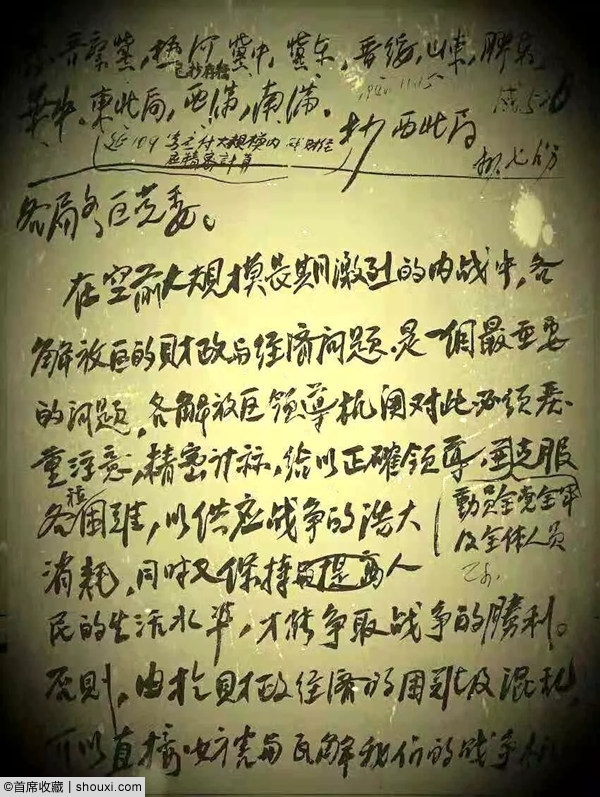 晋察冀,热河冀中,冀东,晋绥,山东,
已抄存稿
华中,东北局,西满,南满。
1946.11.15
抄西北局
应精密计算
抄七份
各局各区党委。
在空前大规模长期激烈的内战中,各
解放区的財政与经濟问题,是一個最重要
的问题,各解放区领導机関对此必须
重注意,精密计祘,给以正確领導,克服
各种困难,以供应战争的浩大
動员全党全军
及全体人员
消耗,同时又保持与提高人
民的生活水準,才能争取战争的勝利。
否则,由於財政经濟的困难及混乱,
可以直接妨害与瓦解我们的战争
©首席收藏 | shouxi.com